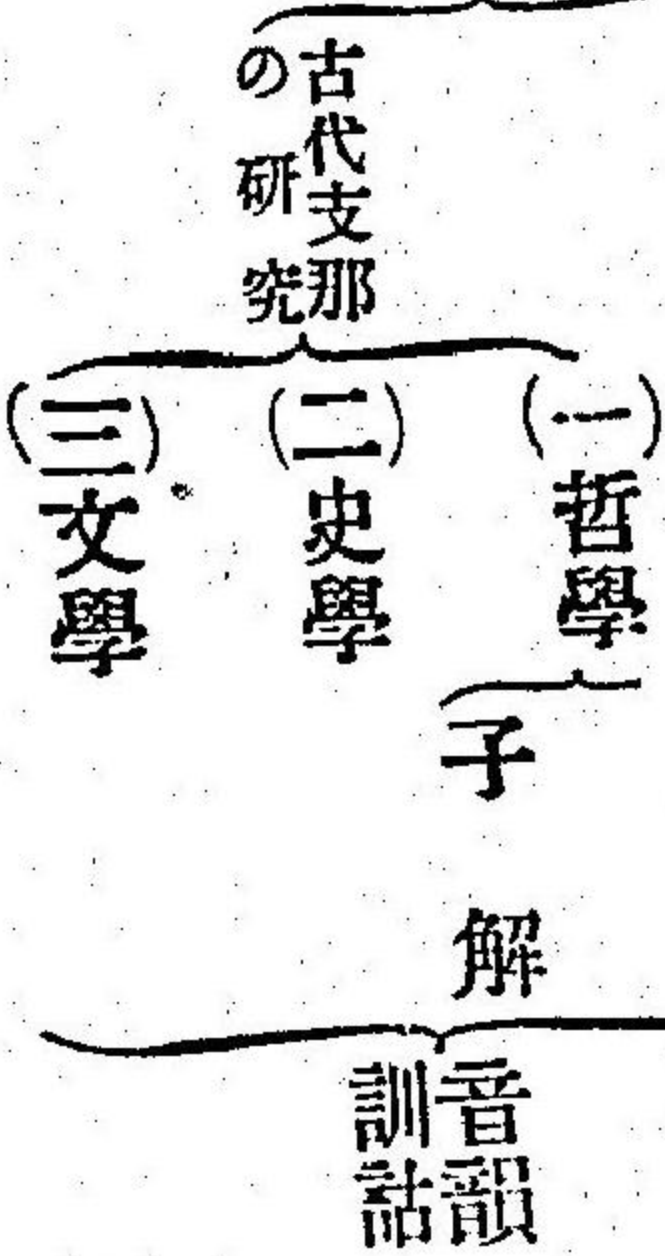 古代支那
の研究
(一)哲學
(二)史學
(三)文學
子
解
音韻
訓詁